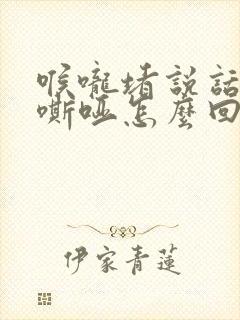 喉嚨堵説話
嘶啞怎麼回
伊家青蓮